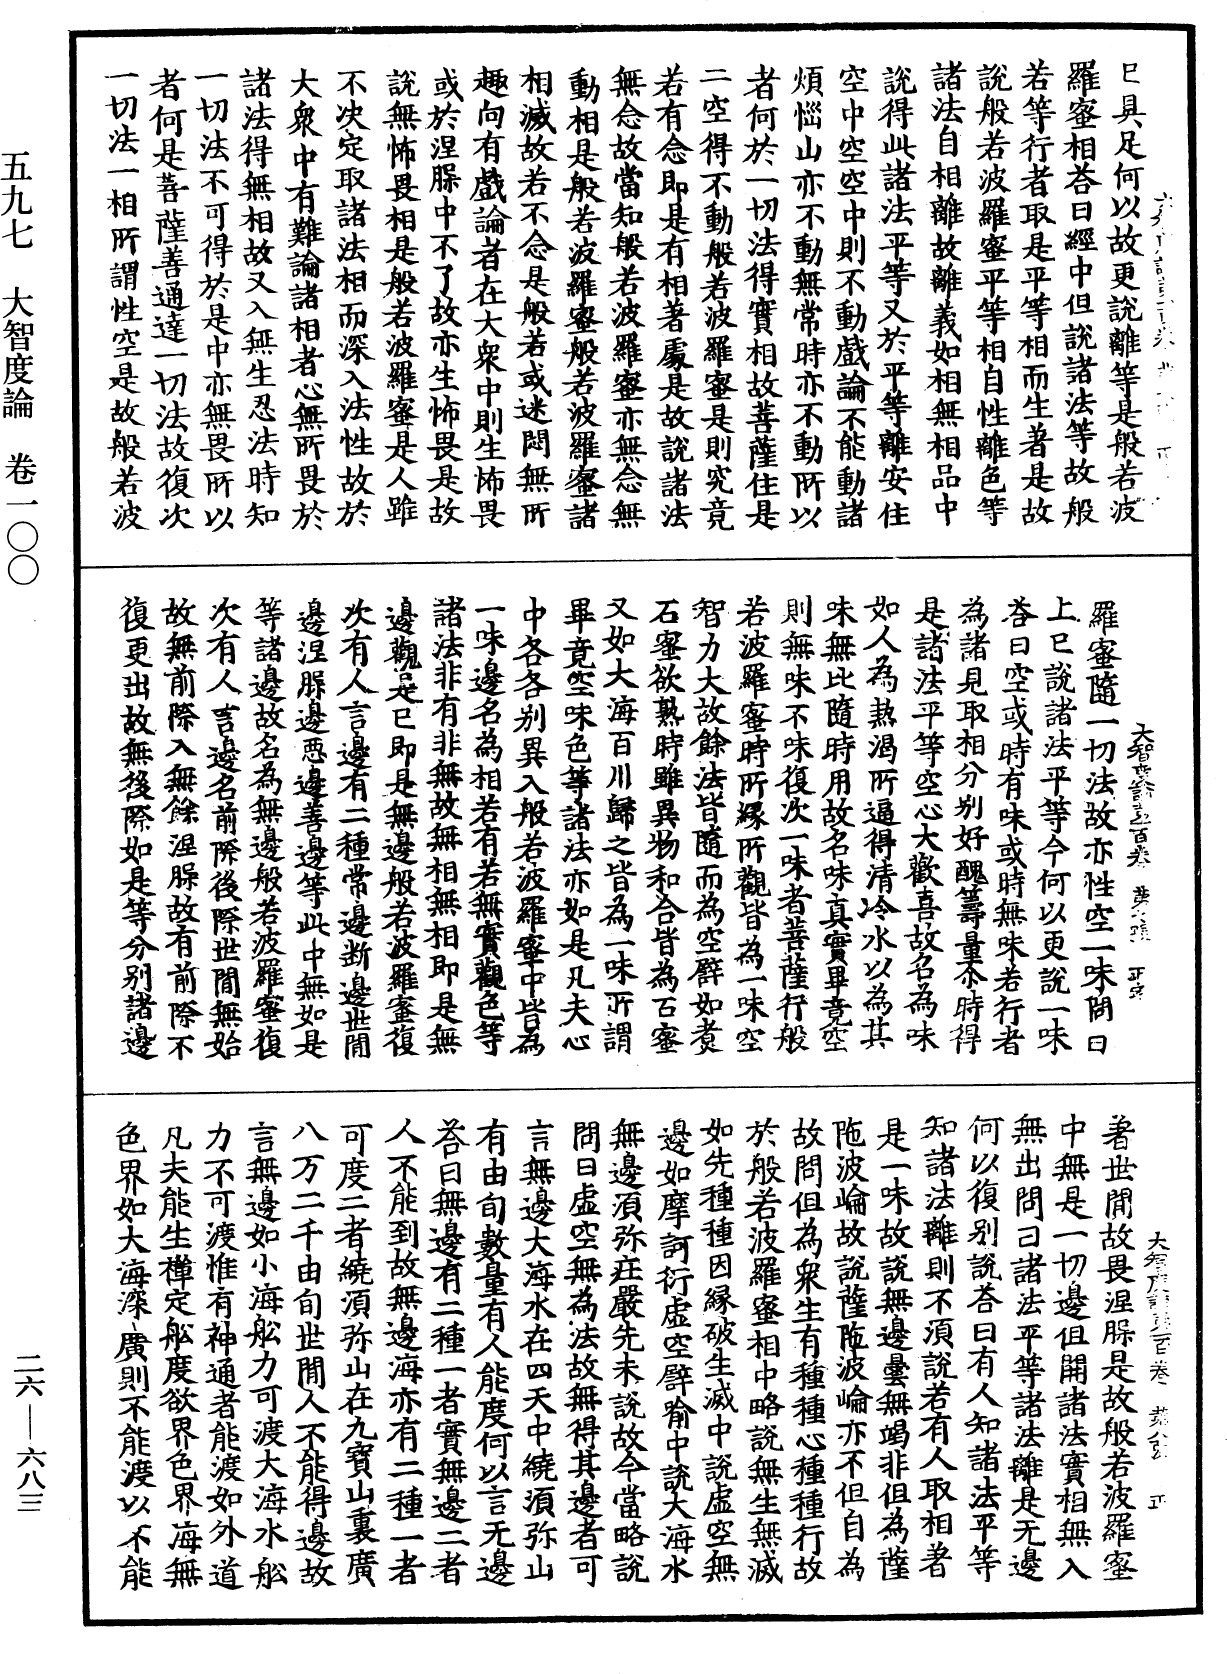 已具足何以故更說離等是般若波
羅蜜相荅曰經中但說諸法等故般
若等行者取是平等相而生著是故
說般若波羅蜜平等相自性離色等
諸法自相離故離義如相無相品中
說得此諸法平等又於平等離安住
空中空空中則不動戲論不能動諸
煩惱山亦不動無常時亦不動所以
者何於一切法得實相故菩薩住是
二空得不動般若波羅蜜是則究竟
若有念即是有相著處是故說諸法
無念故當知般若波羅蜜亦無念無
動相是般若波羅蜜般若波羅蜜諸
相滅故若不念是般若或迷悶無所
趣向有戲論者在大衆中則生怖畏
或於涅脲中不了故亦生怖畏是故
說無怖畏相是般若波羅蜜是人雖
不決定取諸法相而深入法性故於
大衆中有難論諸相者心無所畏於
諸法得無相故又入無生忍法時知
一切法不可得於是中亦無畏所以
者何是菩薩善通達一切法故復次
一切法一相所謂性空是故般若波
羅蜜隨一切法故亦性空一味問曰
上已說諸法平等今何以更說一味
荅曰空或時有味或時無味若行者
為諸見取相分別好醜籌量尒時得
是諸法平等空心大歡喜故名為味
如人為熱渴所逼得清冷水以為其
味無比隨時用故名味真實畢竟空
則無味不味復次一味者菩薩行般
若波羅蜜時所緣所觀皆為一味空
智力大故餘法皆隨而為空譬如煑
石蜜欲熟時雖異物和合皆為石蜜
又如大海百川歸之皆為一味所謂
畢竟空味色等諸法亦如是凡夫心
中各各別異入般若波羅蜜中皆為
一味邊名為相若有若無實觀色等
諸法非有非無故無相無相即是無
邊觀是已即是無邊般若波羅蜜復
次有人言邊有二種常邊斷邊世閒
邊涅脲邊惡邊善邊等此中無如是
等諸邊故名為無邊般若波羅蜜復
次有人言邊名前際後際世閒無始
故無前際入無餘涅脲故有前際不
復更出故無後際如是等分別諸邊
著世閒故畏涅脲是故般若波羅蜜
中無是一切邊但開諸法實相無入
無出問曰諸法平等諸法離是无邊
何以復別說荅曰有人知諸法平等
知諸法離則不須說若有人取相著
是一味故說無邊曇無竭非但為薩
陁波崘故說薩陁波崘亦不但自為
故問但為衆生有種種心種種行故
於般若波羅蜜相中略說無生無滅
如先種種因緣破生滅中說虛空無
邊如摩訶衍虛空譬喻中說大海水
無邊須弥庄嚴先未說故今當略說
問曰虛空無為法故無得其邊者可
言無邊大海水在四天中繞須弥山
有由旬數量有人能度何以言无邊
荅曰無邊有二種一者實無邊二者
人不能到故無邊海亦有二種一者
可度二者繞須弥山在九寶山裏廣
八万二千由旬世閒人不能得邊故
言無邊如小海舩力可渡大海水舩
力不可渡惟有神通者能渡如外道
凡夫能生禪定舩度欲界色界海無
色界如大海深廣則不能渡以不能
五九七 大智度論 卷一〇〇
二六—六八三